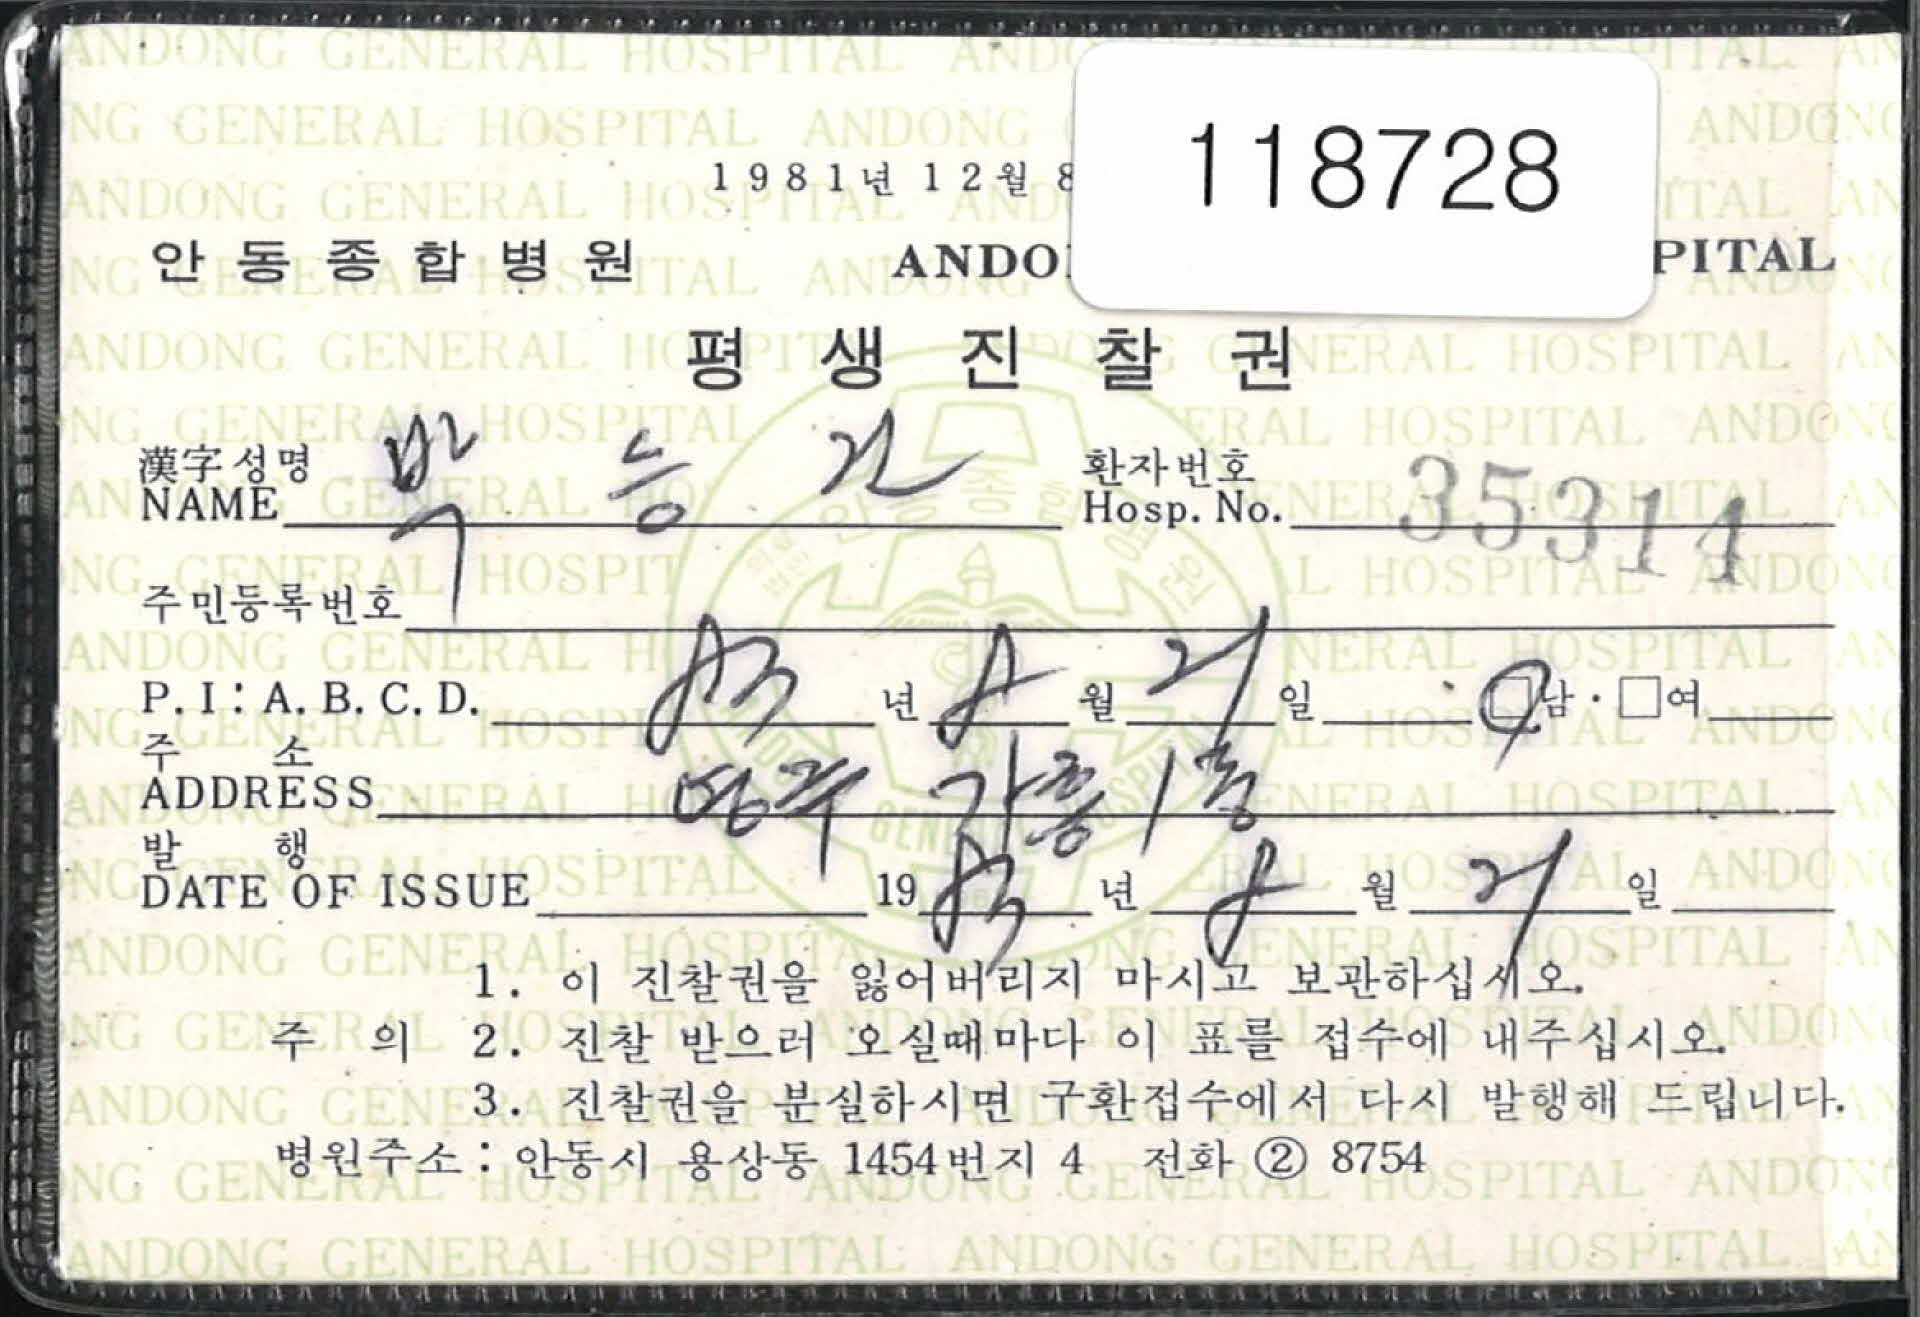 118728
1981년 12월 8
안동종합병원 ANDO PITAL
평생진찰권
漢字성명 박능진 환자번호
NAME Hosp. No. 35314
주민등록번호
P.I: A.B.C.D. 83년 8월 21일 □남·□여
주 소 영주 가흥1동
ADDRESS
발 행
DATE OF ISSUE 1983년 8월 21일
1. 이 진찰권을 잃어버리지 마시고 보관하십시오.
주 의 2. 진찰 받으러 오실때마다 이 표를 접수에 내주십시오.
3. 진찰권을 분실하시면 구환접수에서 다시 발행해 드립니다.
병원주소: 안동시 용상동 1454번지 4 전화 ② 8754